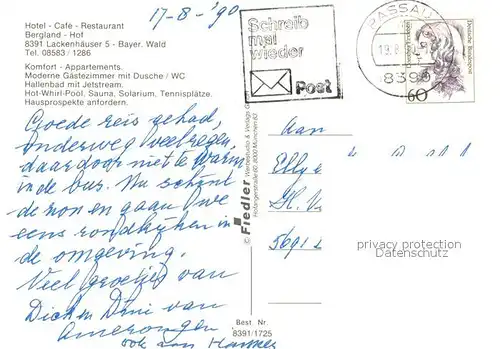 Hotel - Café - Restaurant
Bergland - Hof
8391 Lackenhäuser 5 - Bayer. Wald
Tel. 08583 / 1286
Komfort - Appartements.
Moderne Gästezimmer mit Dusche / WC
Hallenbad mit Jetstream.
Hot-Whirl-Pool, Sauna, Solarium, Tennisplätze.
Hausprospekte anfordern.
17-8-'90
Goede reis gehad,
onderweg veel regen,
daardoor niet te warm
in de bus. Nu schijnt
de zon en gaan we
eens rondkijken in
de omgeving.
Veel groetjes van
Dick en Dini van
Amerongen
ook van
Schreib
mal
wieder
Post
PASSAU
8390
Deutsche Bundespost
60
Aan
Ellye
H. V
5691
© Fiedler Werbestudio & Verlags
8000 München 83
privacy protection
Datenschutz
Best. Nr.
8391/1725